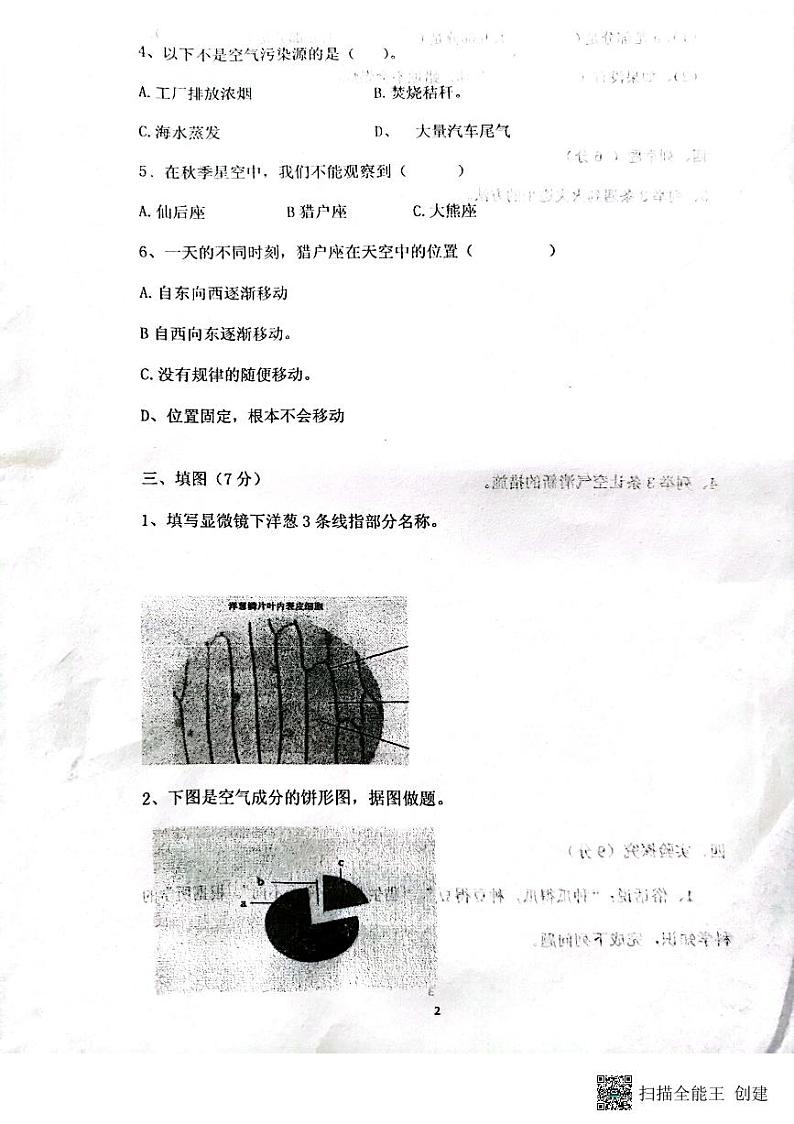 4、以下不是空气污染源的是（  ）。
A.工厂排放浓烟 B.焚烧秸秆。
C.海水蒸发 D、 大量汽车尾气
5．在秋季星空中，我们不能观察到（   ）
A.仙后座 B猎户座 C.大熊座
6、一天的不同时刻，猎户座在天空中的位置（   ）
A.自东向西逐渐移动
B自西向东逐渐移动。
C.没有规律的随便移动。
D、位置固定，根本不会移动
三、填图（7分）
1、填写显微镜下洋葱3条线指部分名称。
洋葱鳞片叶内表皮细胞
2、下图是空气成分的饼形图，据图做题。
c
b
a
2
扫描全能王 创建